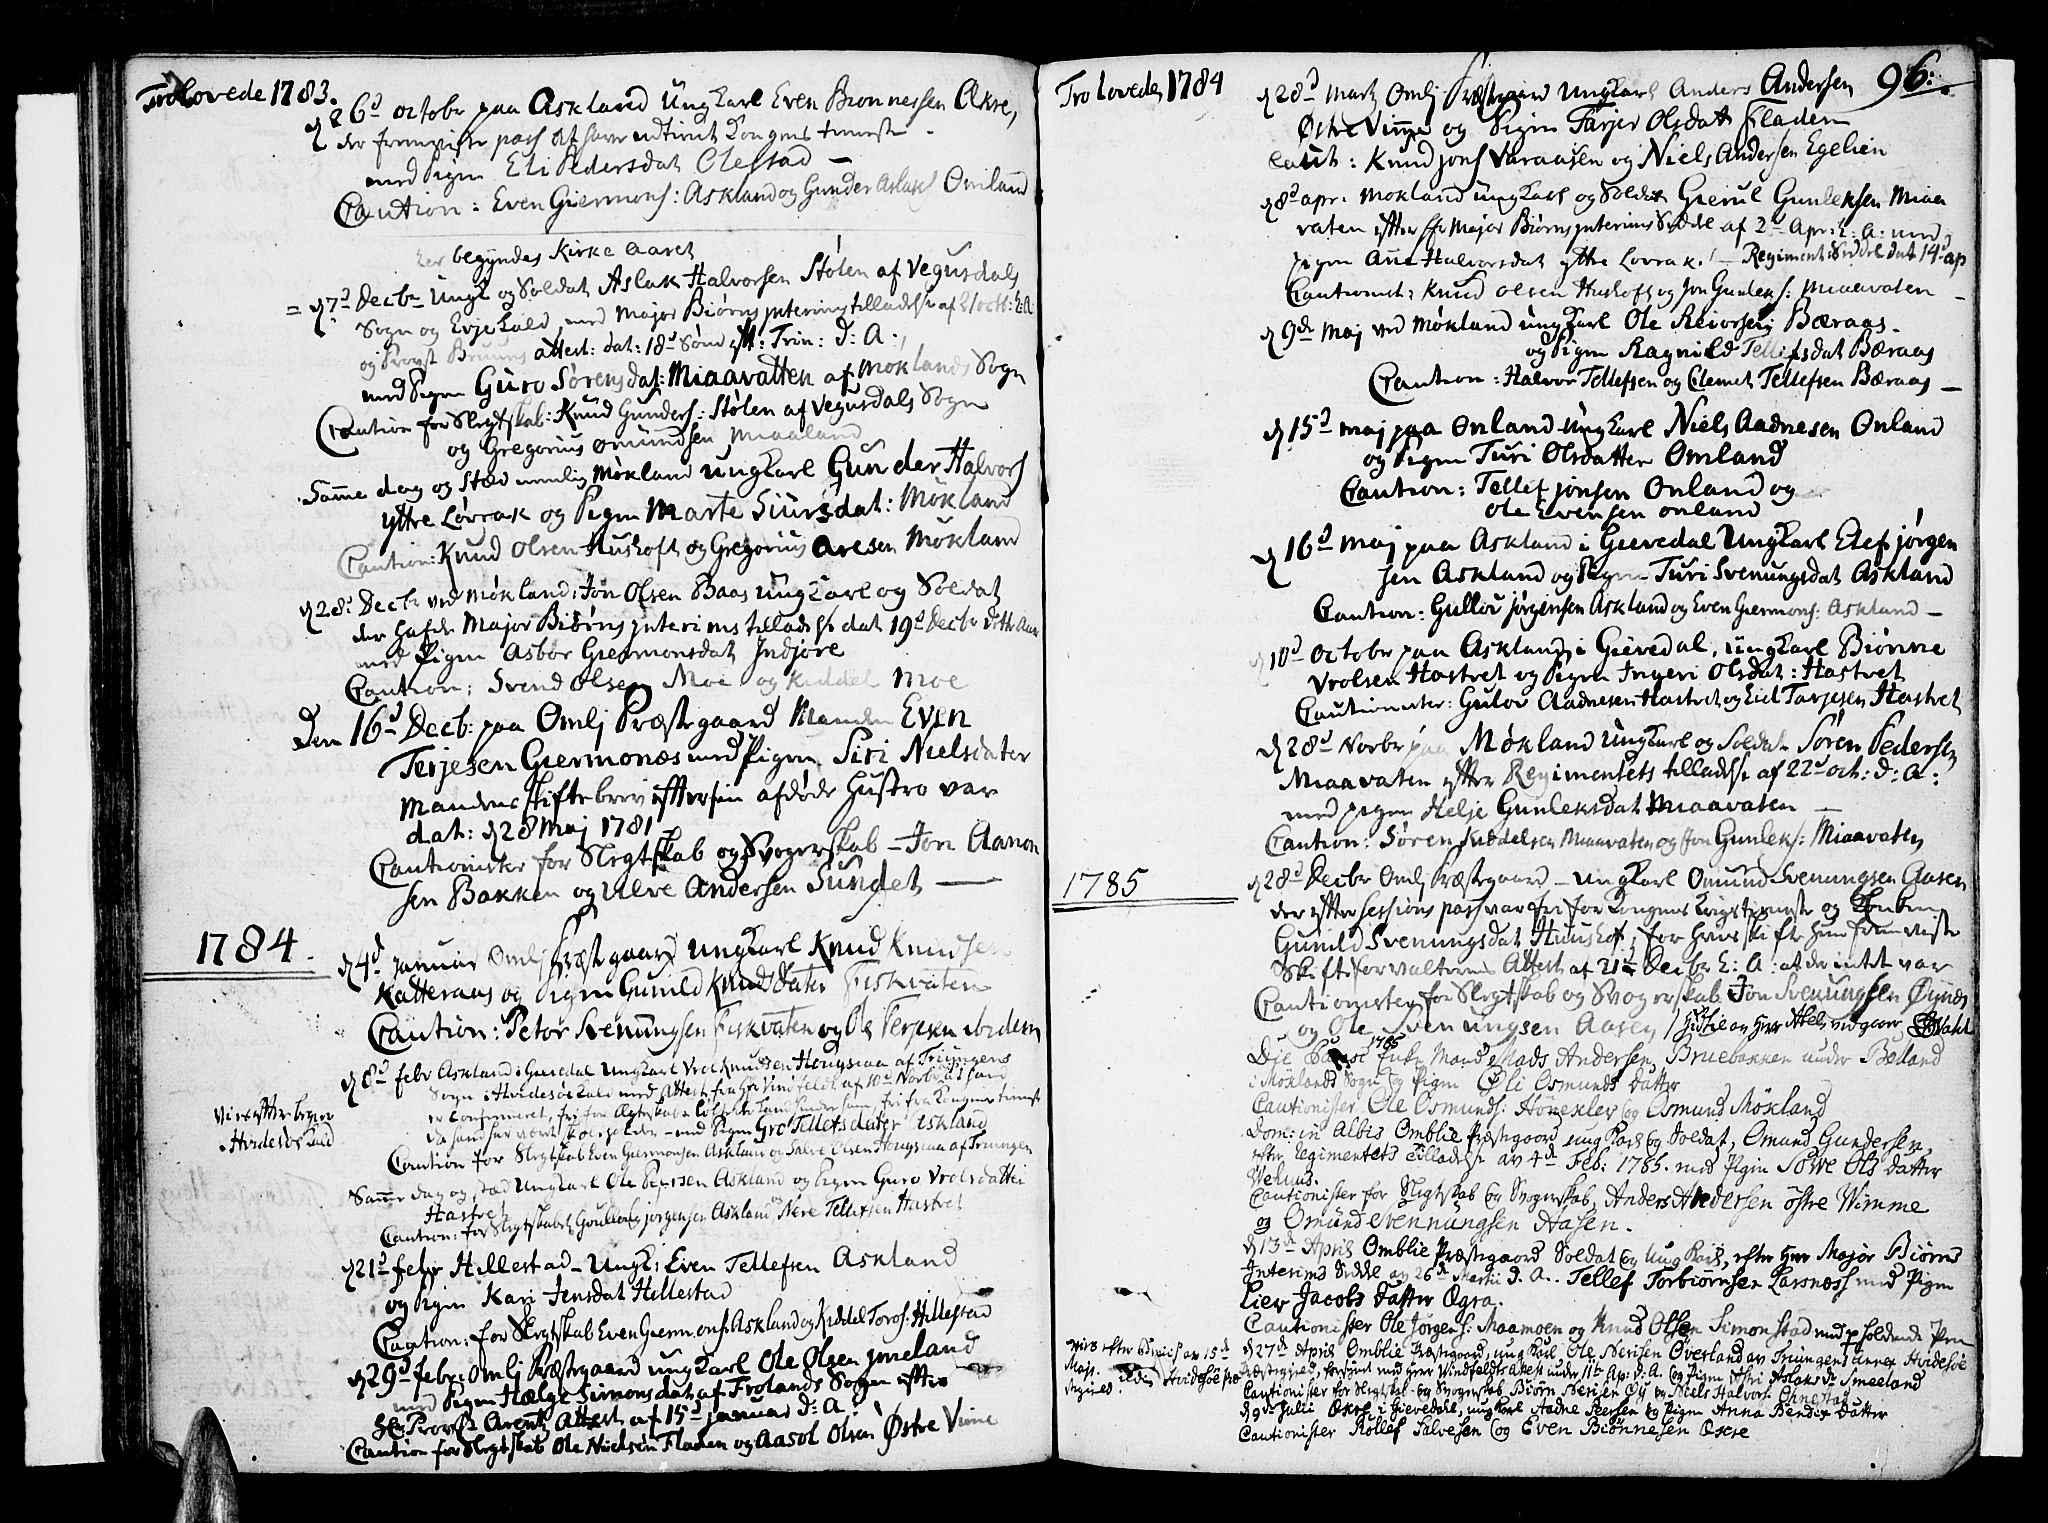 Trolovede 1783.
d 26d octobr paa Askland Ungkarl Even Brønnessen Økre,
der fremviste pass at have udtient Kongens tienneste
med Pigen Eli Pedersdat Olestad —
Caution: Even Giermons: Askland og Gunder Aslaks Omland
her begyndes Kirke Aaret
= d 7d Decbr Ungk og Soldat Aslak Halvorsen Stølen af Vegusdals
Sogn og Evje Kald, med Major Biørns interims tilladelse af 21 octb: h: A:
og Provst Bruuns attest: dat: 18d Sønd eft: Trin: d: A:,
med Pigen Guro Sørensdat: Miaavatten af Moklands Sogn
Caution for Slegtskab: Knud Gunders: Stølen af Vegusdals Sogn
og Gregorius Omundsen Miaaland
Samme dag og stæd nemlig Møkland ungkarl Gunder Halvors
yttre Løvrak og Pigen Marte Siursdat: Møkland
Caution: Knud Olsen Huskoft og Gregorius Aresen Møkland
d 28d Decbr ved Møkland: Jon Olsen Baas ungkarl og Soldat
der hafde Major Biørns interims tilladelse dat 19d Decbr dette Aar
med Pigen Asbor Giermonsdat Indjore
Caution: Svend Olsen Moe og Kiddel Moe
Den 16d Decb: paa Omlj Præstegaard Manden Even
Terjesen Giermonæs med Pigen Siri Nielsdater
Mandens skiftebrev efter sin afdøde Hustro var
dat: d 28 Maj 1781
Cautionister for Slegtskab og Svogerskab — Jon Aanon
sen Bakken og Ulve Andersen Sundet —
1784.
d 4d Januar Omlj Præstegaard Ungkarl Knud Knudsen
Katteraas og Pigen Gunild Knudsdater Fiskvaten
Caution: Petor Svenungsen Fiskvaten og Ole Terjesen
d 8d febr Askland i Gievedal Ungkarl Vrol Knudsen Hougsaa af Triungens
Sogn i Hvidesøe Kald med Attest fra Hr Vindfeldt af 10d Novbr at hand
er Confirmeret, fri for Slegtskab
med Pigen Gro Tellefsdater Askland
Caution for Slegtskab Even Giermonsen Askland og Salve Olsen Hougsaa af Triungen
vies efter brev
i Hvidesøe Kald
Samme dag og stæd Ungkarl Ole Persen Askland og Pigen Guro Vrolsdatter
Hastvet
Caution: for Slegtskabet Goulleig Jørgensen Askland og Nere Tellefsen Hastvet
d 21d febr Hillestad — Ungk: Even Tellefsen Askland
og Pigen Kari Jensdat Hillestad
Caution: for Slegtskab Even Giermons: Askland og Kiddel Toros: Hillestad
d 29d febr: Omlj Præstegaard ungkarl Ole Olsen Jmeland
med Pigen Hælge Simonsdat af Frolands Sogn efter
Hr: Provst Arentz Attest af 15d Januar d: A:
Caution for Slegtskab Ole Nielsen Fladen og Aasol Olsen Østre Vime
Trolovede 1784
96:
d 28d Marts Omlj Præstegaard Ungkarl Anders Andersen
Østre Vime og Pigen Tarjer Olsdat Fladen
Caut: Knud Jons Varaasen og Niels Andersen Egelien
d 8d apr: Mokland ungkarl og Soldat Gierul Gunleksen Miaa
vaten efter Hr Major Biørns interims Seddel af 2d Apr: h: A: med
pigen Anne Halvorsdat yttre Lovrak: — Regiments Seddel dat 14d ap
Cautionist: Knud Olsen Huskoft og Jon Gunleks: Miaavaten —
d 9de Maj ved Møkland ungkarl Ole Reiorsen Bæraas
og Pigen Ragnild Tellefsdat Bæraas
Caution: Halvor Tellefsen og Clemet Tellefsen Bæraas —
d 15d maj paa Onland Ungkarl Niels Aadnesen Onland
og Pigen Turi Olsdatter Omland
Caution: Tellef Jonsen Onland og
Ole Evensen Onland
d 16d Maj paa Askland i Gievedal Ungkarl Elef Jørgen
sen Askland og Pigen Turi Svenungsdat Askland
Caution: Gullov Jørgensen Askland og Even Giermons: Askland —
d 10d Octobr paa Askland i Gievedal, ungkarl Biønne
Vrolsen Hastvet og Pigen Ingeri Olsdat: Hastvet
Cautionister: Gulov Aadnesen Hastvet og Eid Tarjesen Hastvet
d 28d Novbr paa Møkland Ungkarl og Soldat Søren Pedersen
Miaavaten efter Regimentets tilladelse af 22d oct: d: A:
med pigen Helje Gunleksdat Miaavaten —
Caution: Søren Kiddelsen Miaavaten og Jon Gunleks: Miaavaten
1785
d 28d Decbr Omlj Præstegaard — ungkarl Omund Svenungsen Aasen
der efter sessions pass var fri for Kongens krigstienste og Enken
Gunild Svenungsdat Huuskof, for hvis skifte hun fremviste
Skifteforvalterens Attest af 21d Decbr h: A: at der intet var
Cautionister for Slegtskab og Svogerskab Jon Svenungsen Øynes
og Ole Svenungsen Aasen
1785 Enke Mand Mads Andersen, Bruebakken under Boeland
i Møklands Sogn og Pigen Øli Osmunds datter
Cautionister Ole Osmunds: Hønekley og Osmund Møkland
Dom: in Albis Omblie Præstegaard ung karl og Soldat, Omund Gundersen,
efter Regimentets Tilladelse av 4d Feb: 1785. med Pigen Sørve Ols datter
Vehuus.
Cautionister for Slegtskab og Svogerskab, Anders Andersen østre Wimme
og Omund Svennungsen Aasen.
d 13d April Omblie Præstegaard Soldat og Ung Karl, efter Herr Major Biørns
Interims Seddel av 26de Martii d. A.. Tellef Torbiørnsen Larsnæss med Pigen
Liev Jacobs datter Ogra.
Cautionister Ole Jørgens: Maamoen og Knud Olsen Simonstad
d 27d April Omblie Præstegaard, ung Karl Ole Nerisen Øverland av Triungens Annex Hvidesøe
Præstegield, forsynt med Herr Windfeldts Attest under 11te Ap: d: A. og Pigen Aslaks Dr Smeeland
Cautionister for Slegtskab og Svogerskab Biørn Nerisen Øy og Niels Halvors: Ohnestad
d 9de Julii Økre i Gievedal, ungkarl Aadne Peersen og Pigen Anna Bendix Datter
Cautionister Rollef Salvesen og Even Biønnesen Økre